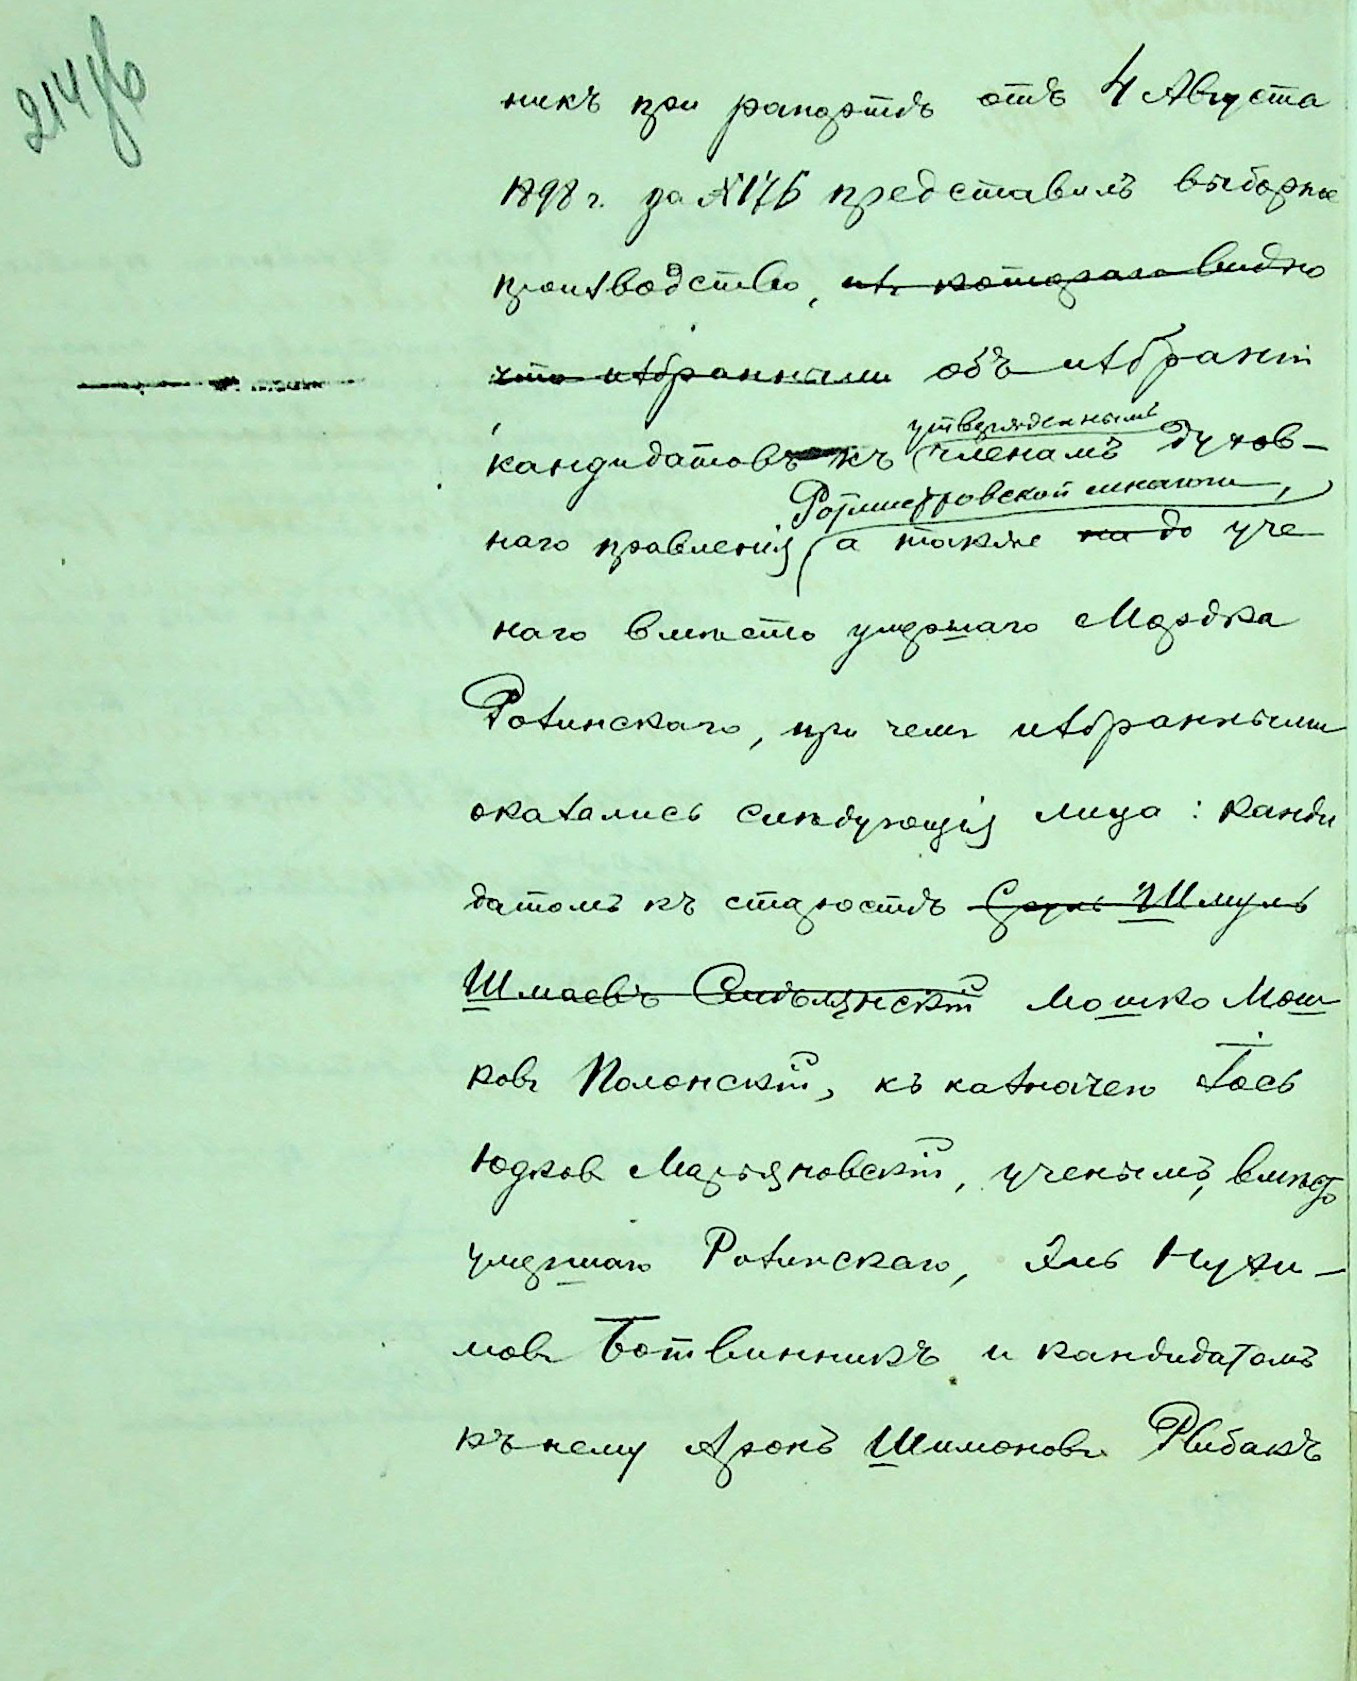 214 об
никъ при рапортѣ отъ 4 Августа
1898 г. за № 176 представилъ выборное
производство, изъ котораго видно
что избранными объ избраніи
утвержденнымъ
кандидатовъ къ членамъ духов-
Ротмистровской школы,
наго правленія, а также на до уче
наго вмѣсто умершаго Мордка
Розинскаго, при чемъ избранными
оказались слѣдующія лица: канди
датомъ къ старостѣ Шмуль
Шмаевъ Мошко Мош
ковъ Полонскій, къ казначею Іось
Юдковъ Марьяновскій, ученымъ, вмѣсто
умершаго Розинскаго, Янь Нухи-
мовъ Ботвинникъ и кандидатомъ
къ нему Аронъ Шимоновъ Рыбакъ